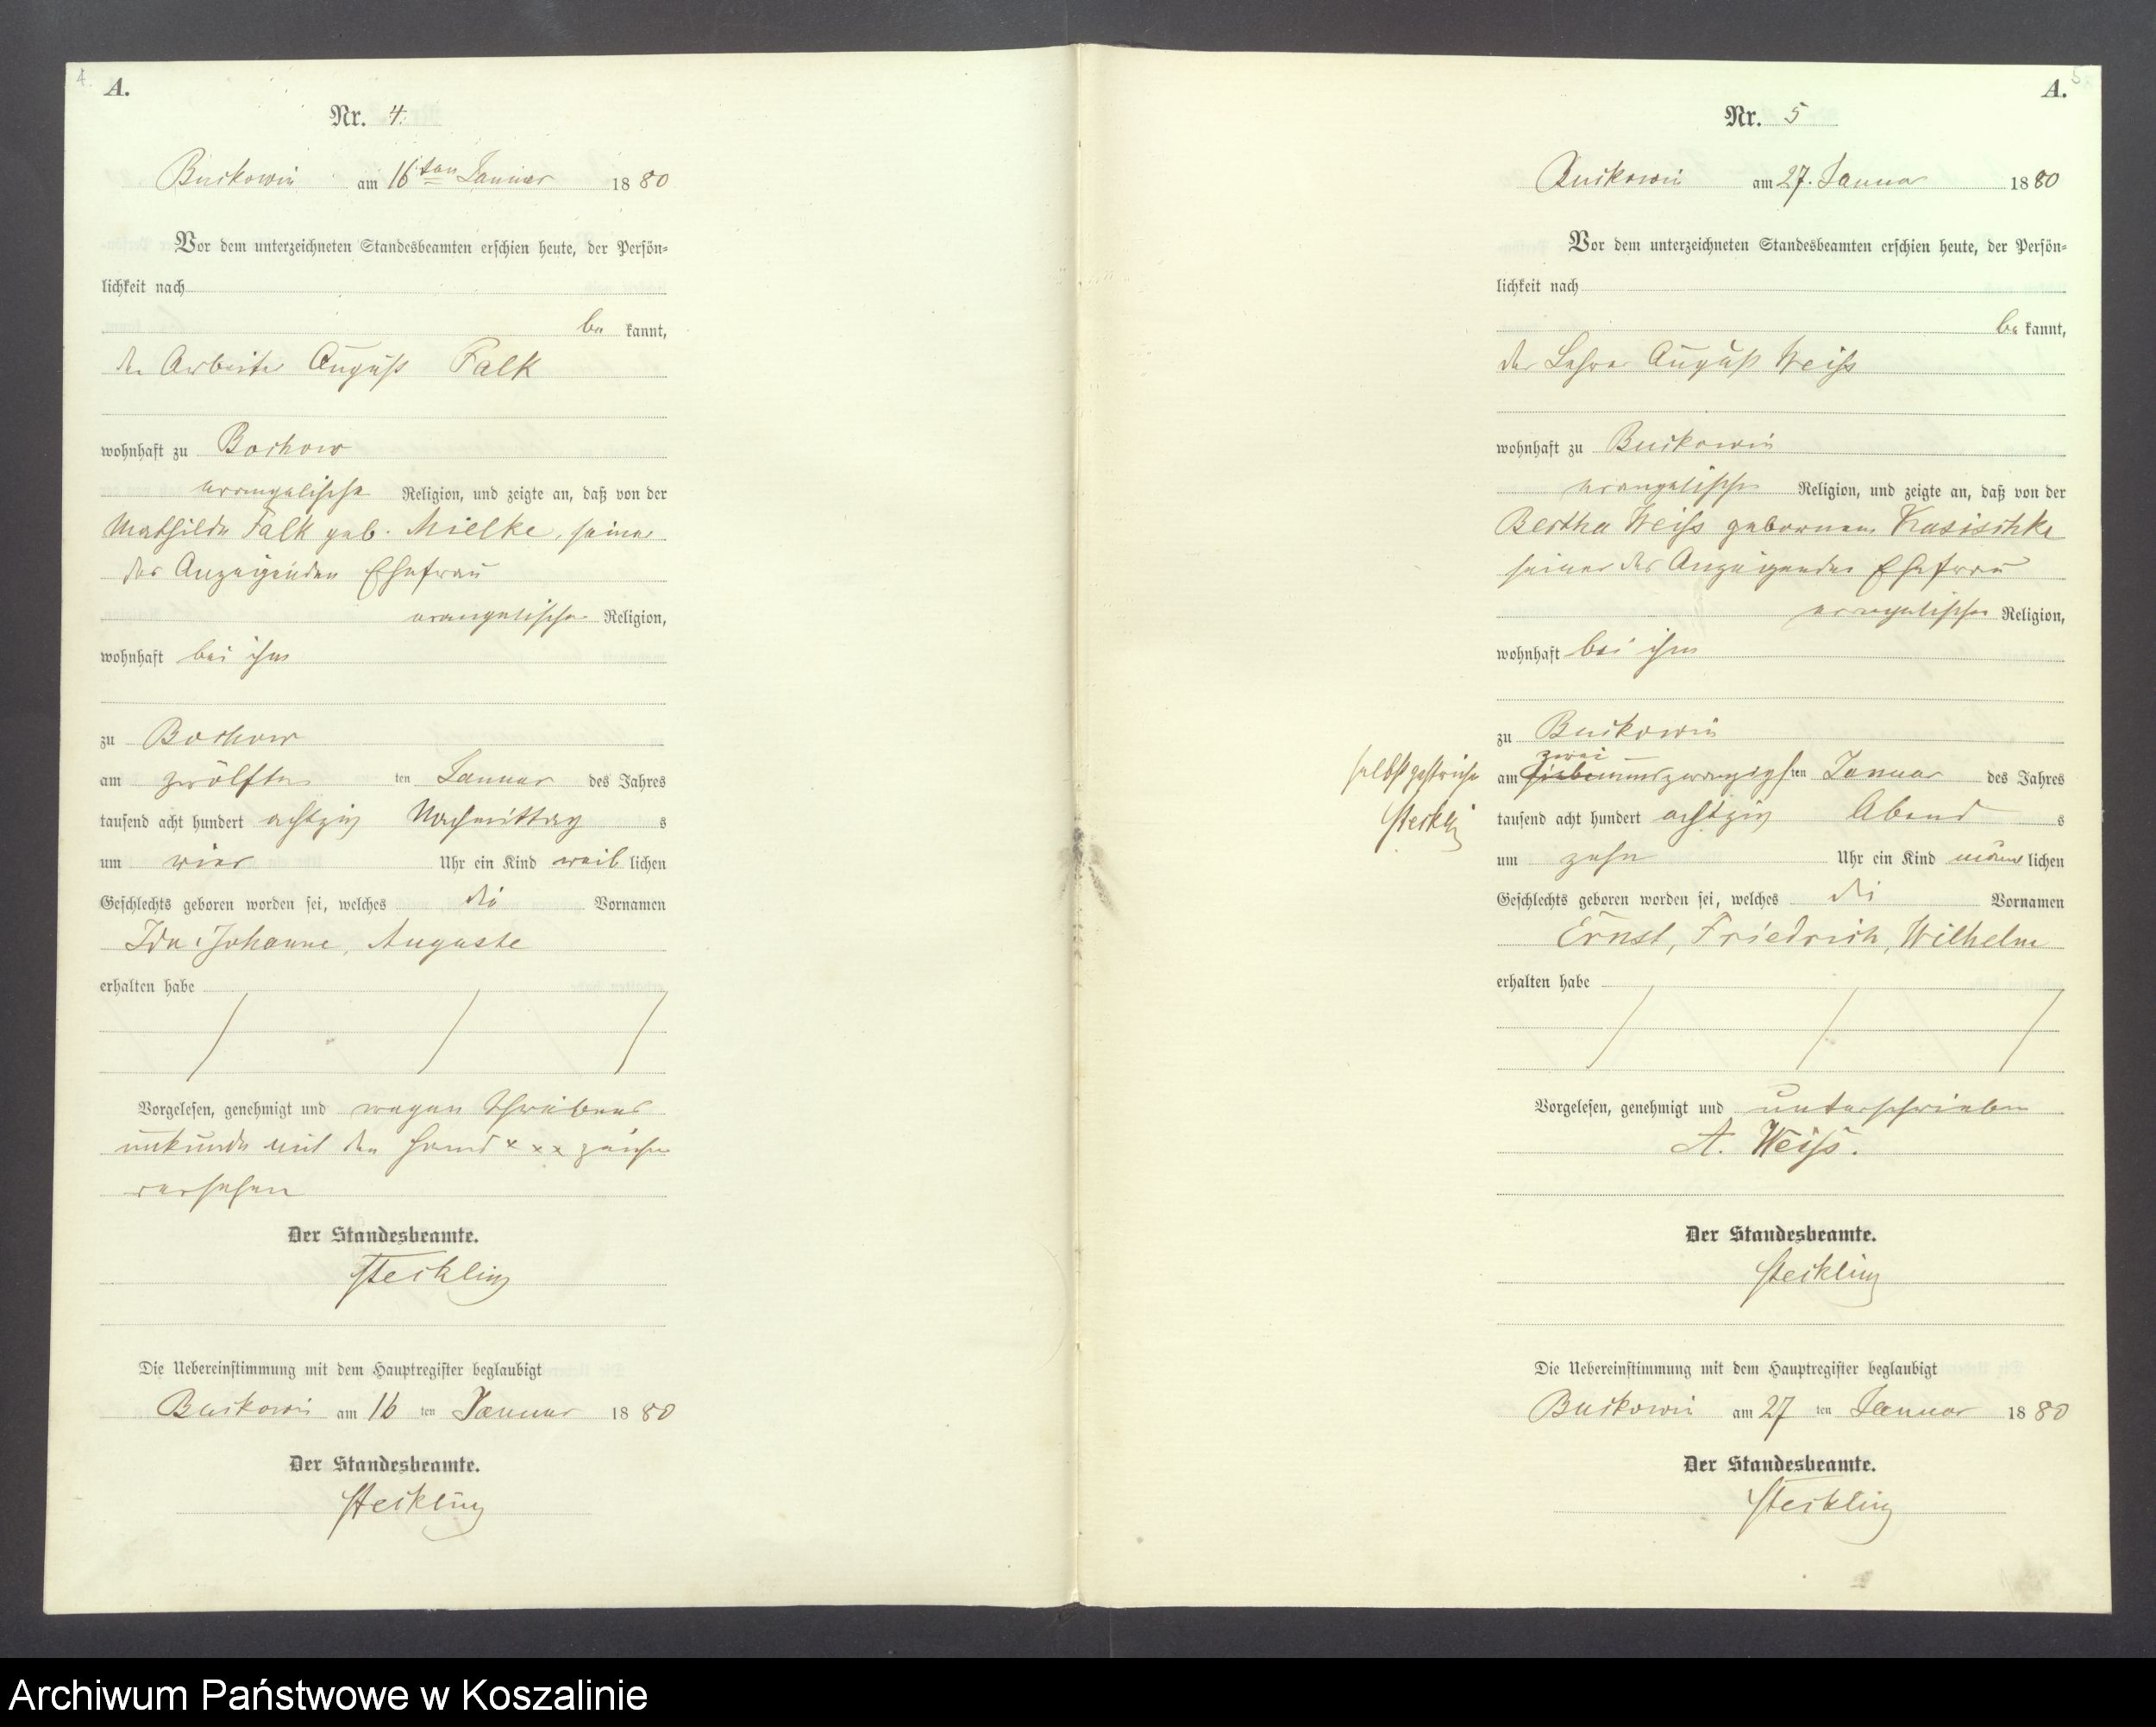 4.
A.
Nr. 4.
Buckowin am 16ten Januar 1880
Vor dem unterzeichneten Standesbeamten erschien heute, der Persön-
lichkeit nach
be kannt,
der Arbeiter August Falk
wohnhaft zu Bochow
evangelischer Religion, und zeigte an, daß von der
Mathilde Falk geb. Mielke, seiner
des Anzeigenden Ehefrau
evangelischer Religion,
wohnhaft bei ihm
zu Bochow
am zwölften ten Januar des Jahres
tausend acht hundert achtzig Nachmittag s
um vier Uhr ein Kind weib lichen
Geschlechts geboren worden sei, welches die Vornamen
Ida, Johanne, Auguste
erhalten habe
Vorgelesen, genehmigt und wegen Schreibens
unkunde mit den Hand x x x zeichen
versehen
Der Standesbeamte.
Steckling
Die Uebereinstimmung mit dem Hauptregister beglaubigt
Buckowin am 16 ten Januar 1880
Der Standesbeamte.
Steckling
5.
A.
Nr. 5
Buckowin am 27. Januar 1880
Vor dem unterzeichneten Standesbeamten erschien heute, der Persön-
lichkeit nach
be kannt,
der Lehrer August Weiß
wohnhaft zu Buckowin
evangelischer Religion, und zeigte an, daß von der
Bertha Weiß gebornen Kasischke
seiner des Anzeigenden Ehefrau
evangelischer Religion,
wohnhaft bei ihm
zu Buckowin
zwei
am siebenundzwanzigsten Januar des Jahres
selbst gestrichen
Steckling
tausend acht hundert achtzig Abend s
um zehn Uhr ein Kind männ lichen
Geschlechts geboren worden sei, welches die Vornamen
Ernst, Friedrich, Wilhelm
erhalten habe
Vorgelesen, genehmigt und unterschrieben
A. Weiß.
Der Standesbeamte.
Steckling
Die Uebereinstimmung mit dem Hauptregister beglaubigt
Buckowin am 27 ten Januar 1880
Der Standesbeamte.
Steckling
Archiwum Państwowe w Koszalinie